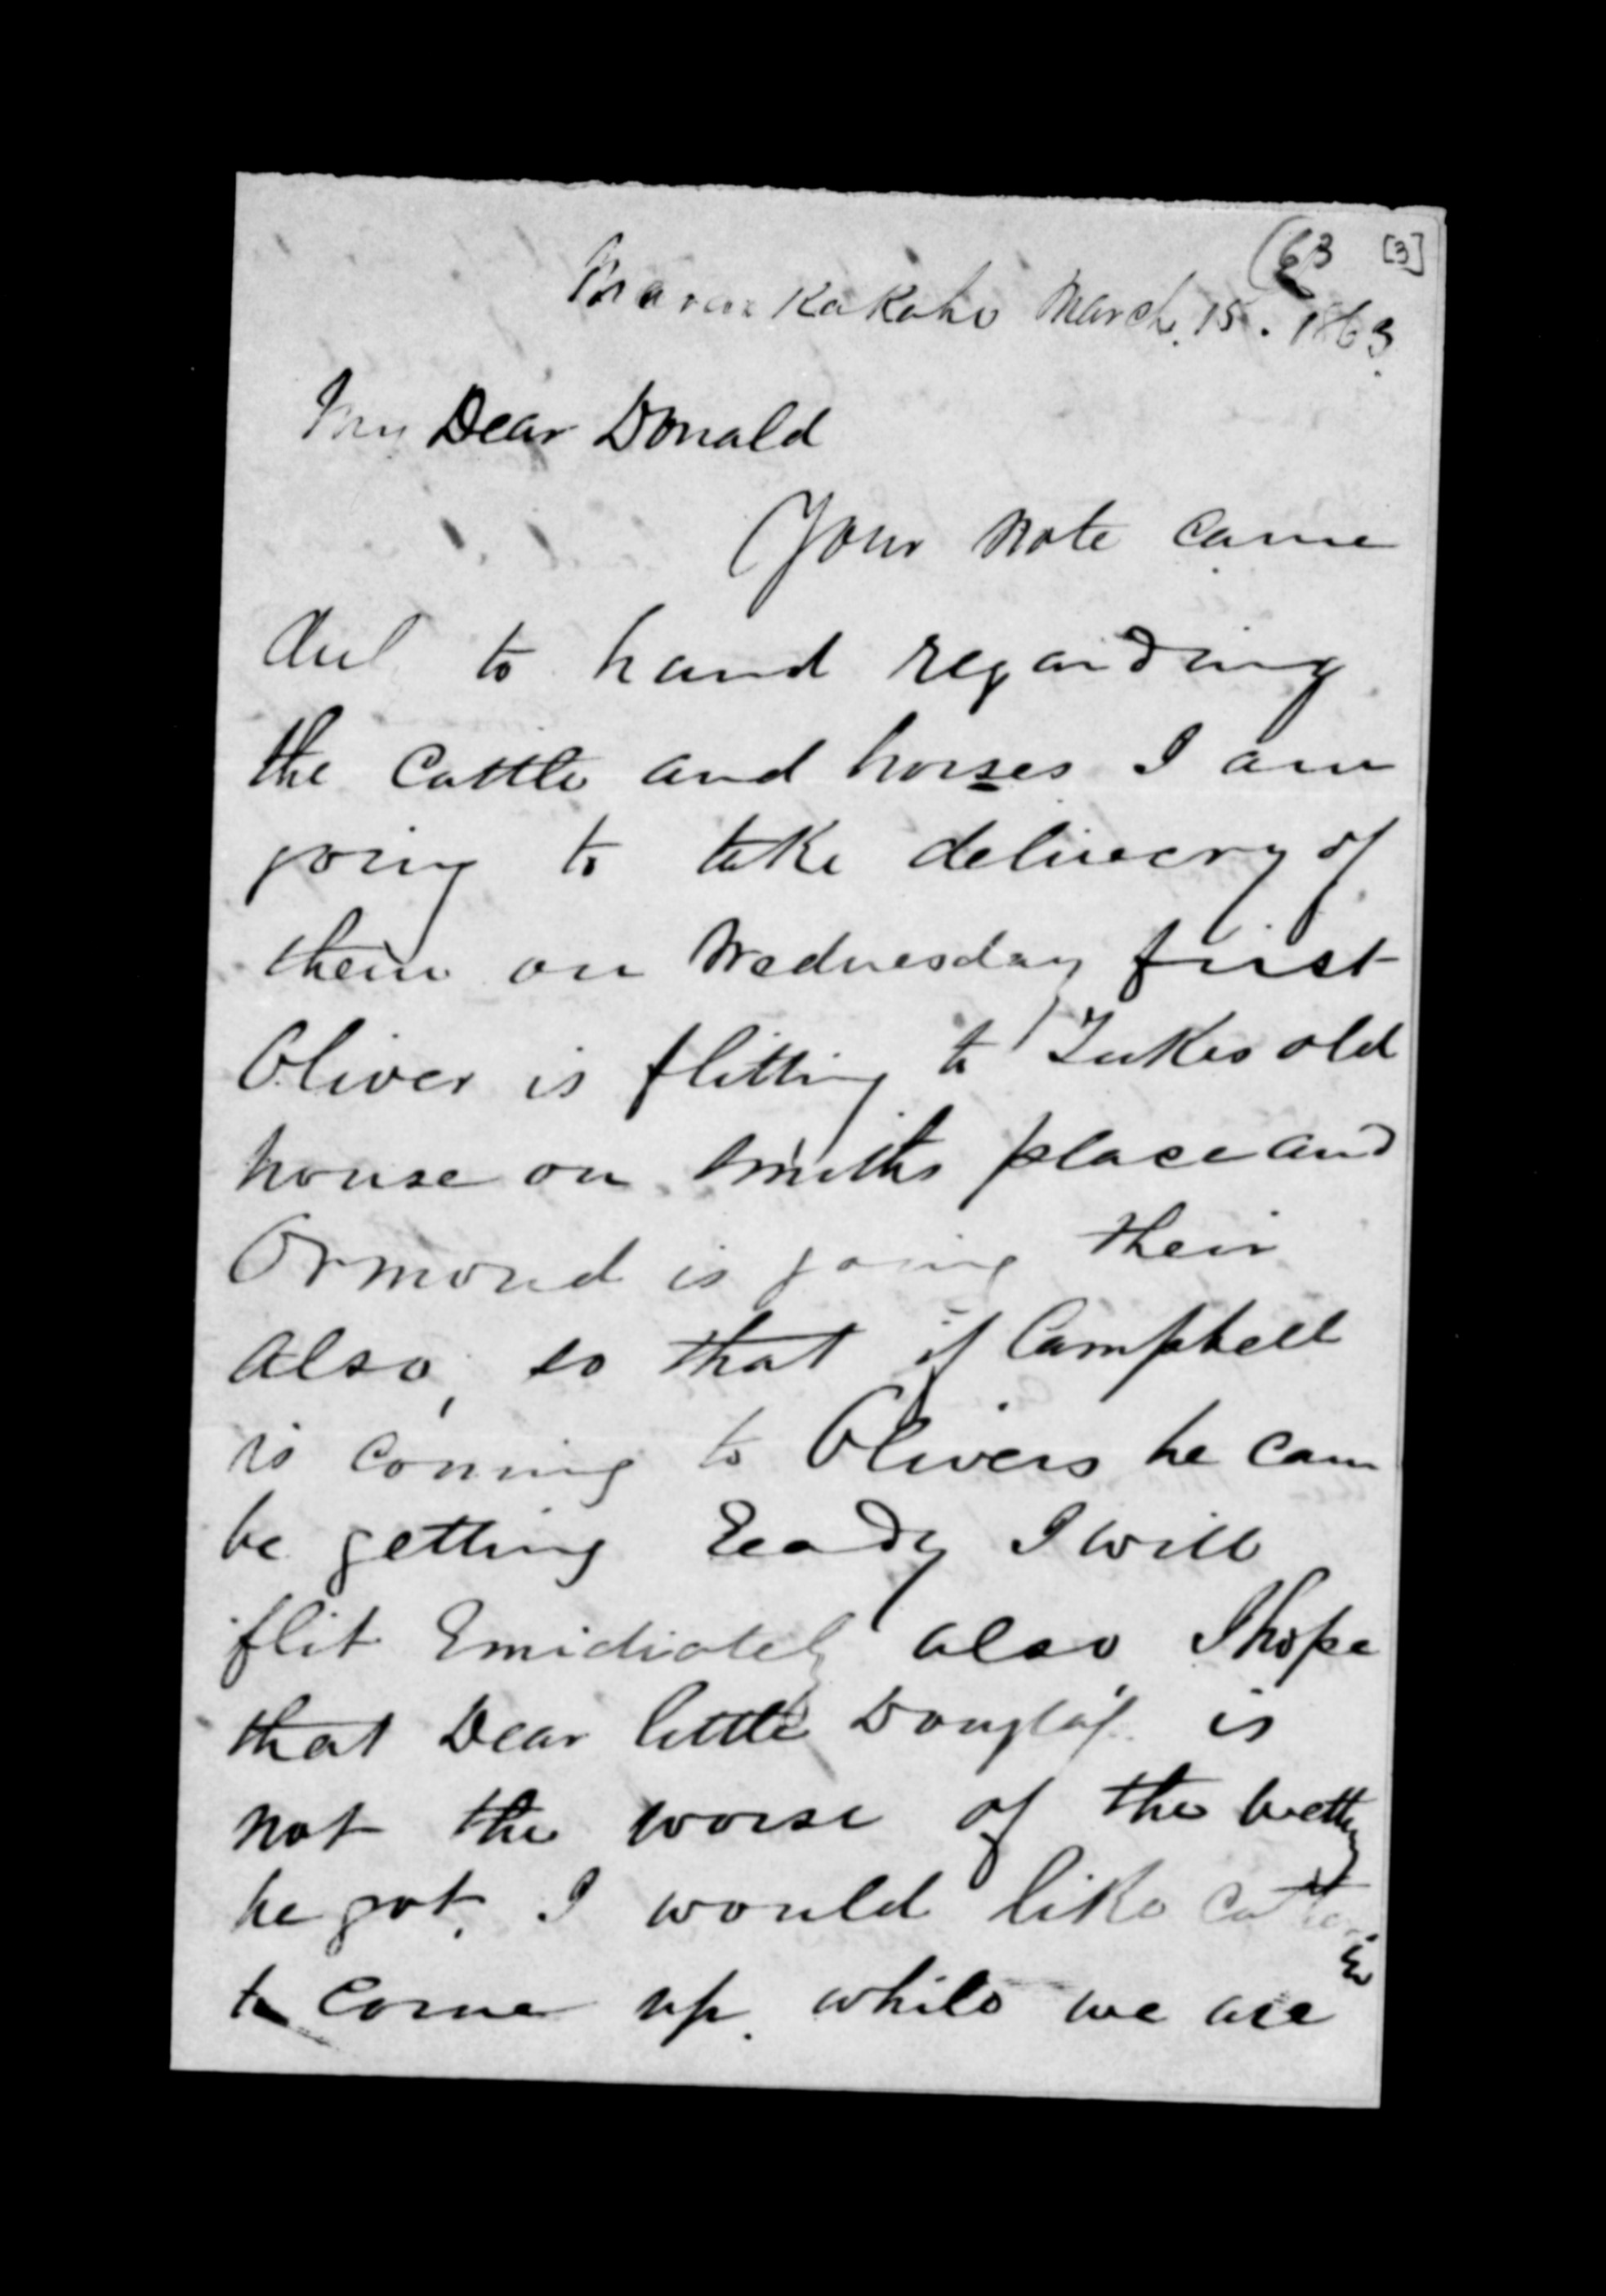 (63 [3]
Maraekakaho March. 15. 1863.
My Dear Donald
Your note came
dul to hand regarding
the cattle and horses I am
going to take delivery of
them on Wednesday first
Oliver is flitting to old
house on Smiths place and
Ormond is going their
also, so that if Campbell
is coming to Olivers he can
be getting Ready I will
flit Emidiately also, I hope
that Dear little Douglas is
not the worse of the wetting
he got. I would like
to come up while we are